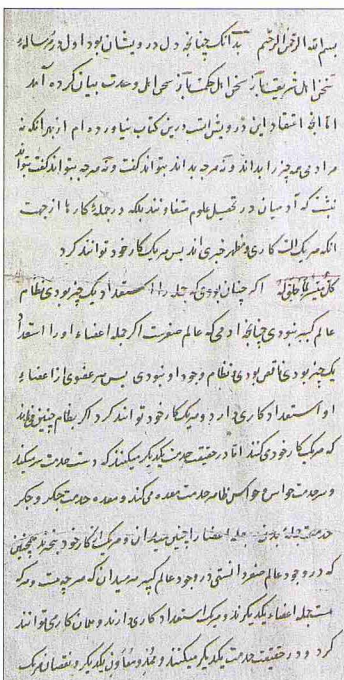 بسم الله الرحمن الرحیم بدآنک چنانچه دل درویشان بود اول در رساله
سخن اهل شریعت باز سخن اهل حکمت باز سخن اهل وحدت بیان کرده آمد
اما آنچه اعتقاد این درویش است درین کتاب نیاورده‌ام از بهر آنکه نه
مردمی همه چیز را بداند و نه هرچه بداند بتواند گفت و نه هرچه بتواند گفت بتواند
نبشت که آدمیان در تحصیل علوم متفاوتند بلکه در جمله کارها از جهت
آنکه هریک آلت کاری و مظهر چیزی‌اند پس هریک کار خود توانند کرد
کل میسر لما خلق له اگر چنان بودی که جمله را استعداد یک چیز بودی نظام
عالم کبیر نبودی چنانچه آدمی که عالم صغیر است اگر جمله اعضاء او را استعداد
یک چیز بودی ناقص بودی و نظام وجود او نبودی پس هر عضوی از اعضاء
او استعداد کاری دارد و هریک کار خود توانند کرد اگر بظاهر چنین می‌نماید
که هریک کار خود می‌کنند اما در حقیقت خدمت یکدیگر میکنند که دست خدمت سر میکند
و سر خدمت حواس و حواس ظاهر خدمت معده می‌کند و معده خدمت جگر و جگر
خدمت جمله بدن جمله اعضا را چنین میدان و هریک از کار خود همچنین
که در وجود عالم صغیر دانستی در وجود عالم کبیر همین میدان که هرچه هست و هرکه
هست جمله اعضاء یکدیگرند و هریک استعداد کاری دارند و همان کار می‌توانند
کرد و در حقیقت خدمت یکدیگر میکنند و ممد و معاون یکدیگرند و نقصان هریک